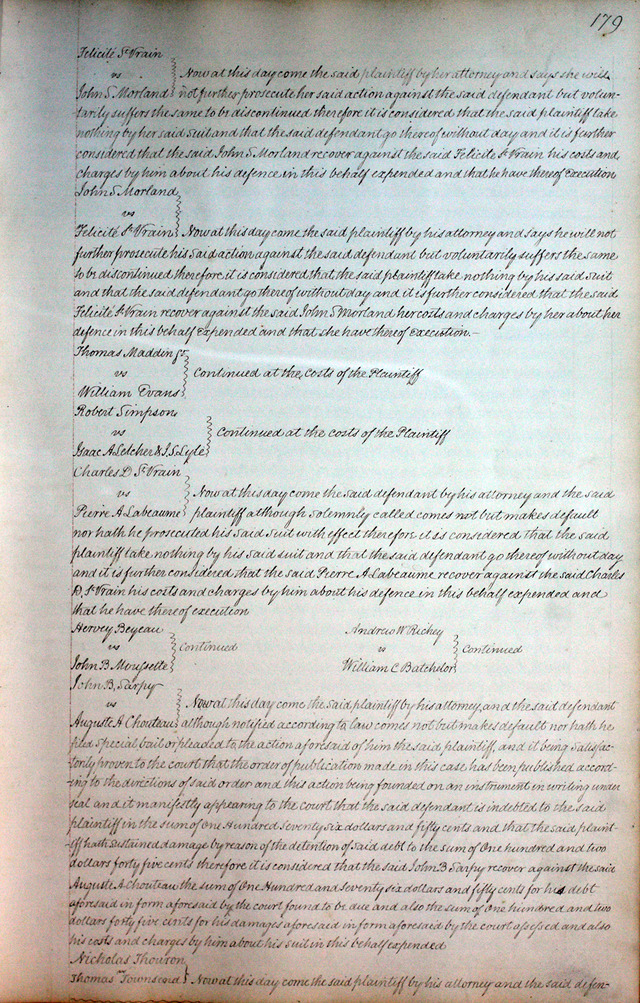 179
Felicité St Vrain
vs
John S Morland
Now at this day come the said plaintiff by her attorney and says she will
not further prosecute her said action against the said defendant but volun-
tarily suffers the same to be discontinued therefore it is considered that the said plaintiff take
nothing by her said suit and that the said defendant go thereof without day and it is further
considered that the said John S Morland recover against the said Felicite St Vrain his costs and
charges by him about his defence in this behalf expended and that he have thereof Execution
John S Morland
vs
Felicité St Vrain
Now at this day come the said plaintiff by his attorney and says he will not
further prosecute his said action against the said defendant but voluntarily suffers the same
to be discontinued therefore it is considered that the said plaintiff take nothing by his said suit
and that the said defendant go thereof without day and it is further considered that the said
Felicité St Vrain recover against the said John S Morland her costs and charges by her about her
defence in this behalf expended and that she have thereof execution.—
Thomas Madding
vs
William Evans
Continued at the costs of the Plaintiff
Robert Simpson
vs
Isaac A Letcher & J. S. Lyle
Continued at the costs of the Plaintiff
Charles D St Vrain
vs
Pierre A Labeaume
Now at this day come the said defendant by his attorney and the said
plaintiff although solemnly called comes not but makes default
nor hath he prosecuted his said suit with effect therefore it is considered that the said
plaintiff take nothing by his said suit and that the said defendant go thereof without day
and it is further considered that the said Pierre A Labeaume recover against the said Charles
D. St Vrain his costs and charges by him about his defence in this behalf expended and
that he have thereof execution
Hervey
vs
John B
Continued
Andrew W Richey
vs
William C Batchelor
Continued
John B. Sarpy
vs
Auguste A Chouteau
Now at this day come the said plaintiff by his attorney, and the said defendant
although notified according to law comes not but makes default nor hath he
filed special bail or pleaded to the action aforesaid of him the said plaintiff and it being satisfac-
torily proven to the court that the order of publication made in this case has been published accord-
ing to the directions of said order and this action being founded on an instrument in writing under
seal and it manifestly appearing to the court that the said defendant is indebted to the said
plaintiff in the sum of One Hundred Seventy six dollars and fifty cents and that the said plaint-
iff hath sustained damage by reason of the detention of said debt to the sum of One hundred and two
dollars forty five cents therefore it is considered that the said John B Sarpy recover against the said
Auguste A Chouteau the sum of One Hundred and seventy six dollars and fifty cents for his debt
aforesaid in form aforesaid by the court found to be due and also the sum of One hundred and two
dollars forty five cents for his damages aforesaid in form aforesaid by the court assessed and also
his costs and charges by him about his suit in this behalf expended
Nicholas Thouron
Thomas Townsend
Now at this day come the said plaintiff by his attorney and the said defen-